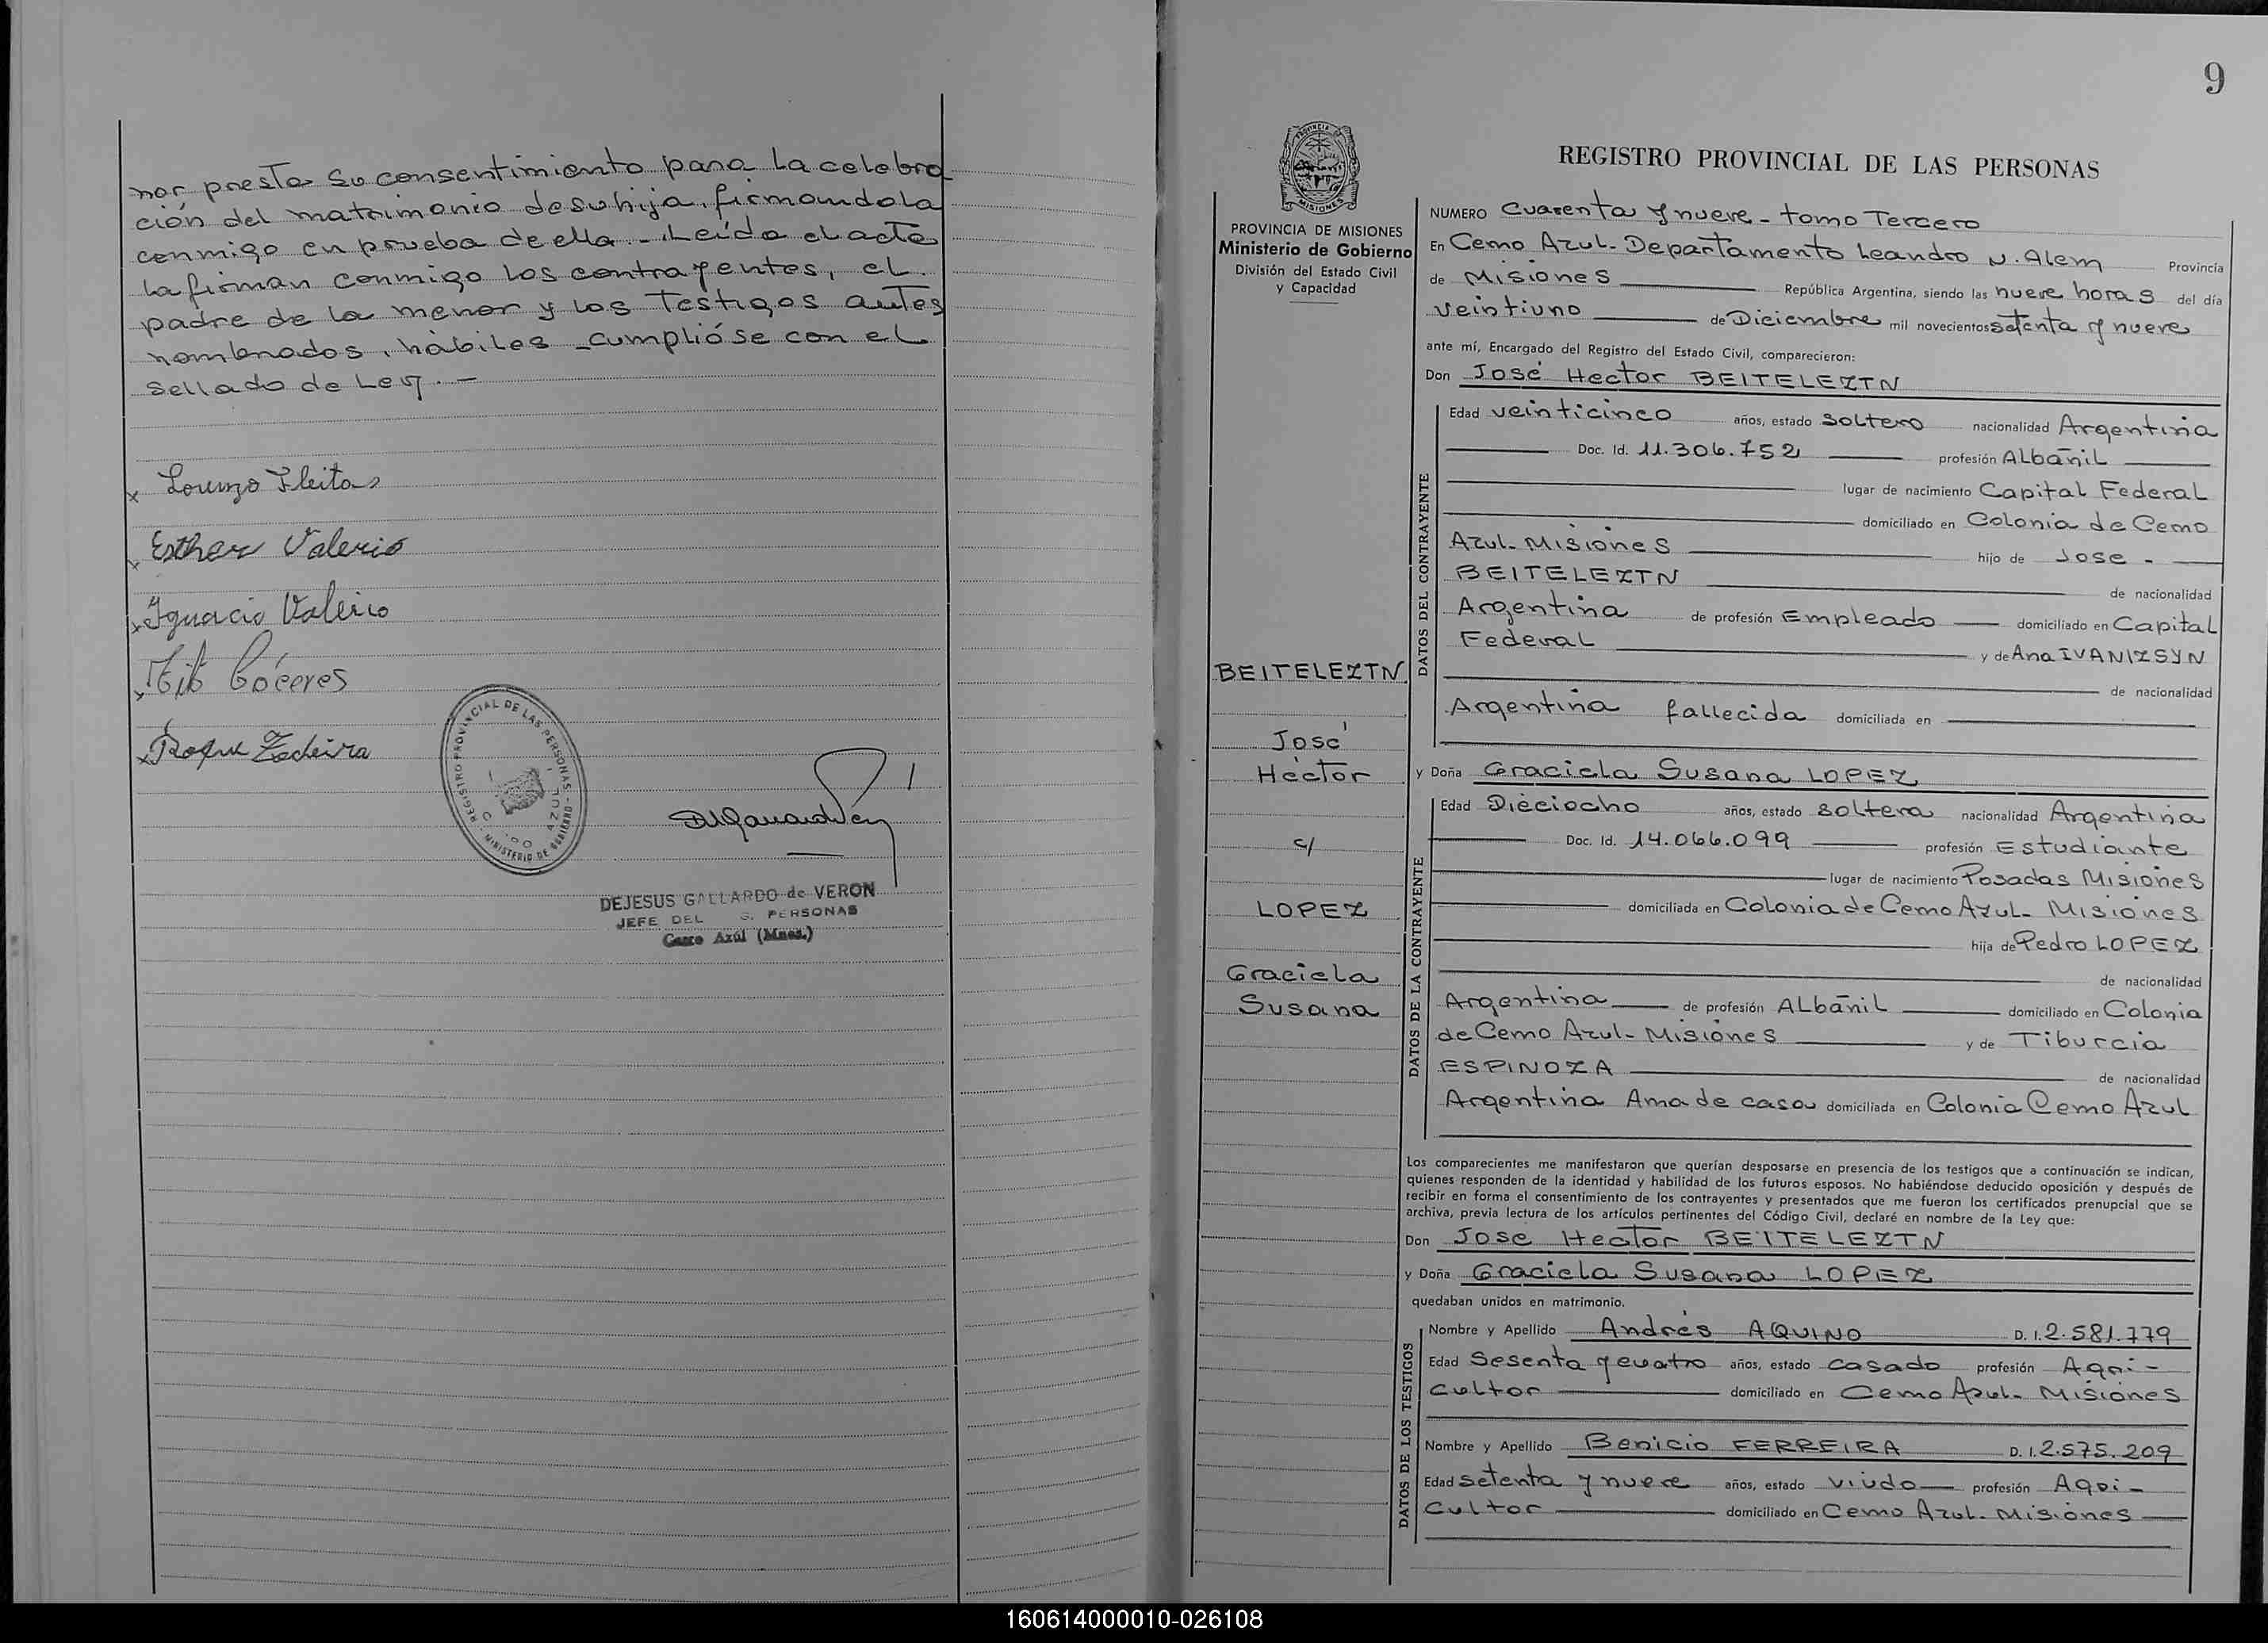 nor presta su consentimiento para la celebra
ción del matrimonio de su hija, firmandola
conmigo en prueba de ella.- Leída el acta
la firman conmigo los contrayentes, el
padre de la menor y los testigos antes
nombrados, hàbiles -cumplióse con el
Sellado de Ley.-
x Lorenzo Fleitas
x Esther Valerio
x Ignacio Valerio
x Cáceres
x Roque
REGISTRO PROVINCIAL DE LAS PERSONAS - MINISTERIO DE GOBIERNO - AZUL
DEJESUS GALLARDO de VERON
JEFE DEL S. PERSONAS
Cerro Azúl (Mnes.)
9
PROVINCIA DE MISIONES
PROVINCIA DE MISIONES
Ministerio de Gobierno
División del Estado Civil
y Capacidad
BEITELEZTN
José
Hèctor
c/
LOPEZ
Graciela
Susana
REGISTRO PROVINCIAL DE LAS PERSONAS
NUMERO Cuarenta y nueve - tomo Tercero
En Cerro Azul- Departamento Leandro N. Alem Provincia
de Misiones República Argentina, siendo las nueve horas del día
veintiuno de Diciembre mil novecientos setenta y nueve
ante mí, Encargado del Registro del Estado Civil, comparecieron:
Don José Hector BEITELEZTN
DATOS DEL CONTRAYENTE
Edad veinticinco años, estado soltero nacionalidad Argentina
Doc. Id. 11.306.752 profesión Albañil
lugar de nacimiento Capital Federal
domiciliado en Colonia de Cerro
Azul- Misiones hijo de Jose -
BEITELEZTN de nacionalidad
Argentina de profesión Empleado domiciliado en Capital
Federal y de Ana IVANIZSYN
de nacionalidad
Argentina fallecida domiciliada en
y Doña Graciela Susana LOPEZ
DATOS DE LA CONTRAYENTE
Edad Dièciocho años, estado soltera nacionalidad Argentina
Doc. Id. 14.066.099 profesión Estudiante
lugar de nacimiento Posadas Misiones
domiciliada en Colonia de Cerro Azul- Misiones
hija de Pedro LOPEZ
de nacionalidad
Argentina de profesión Albañil domiciliado en Colonia
de Cerro Azul- Misiones y de Tiburcia
ESPINOZA de nacionalidad
Argentina Ama de casa domiciliada en Colonia Cerro Azul
Los comparecientes me manifestaron que querían desposarse en presencia de los testigos que a continuación se indican,
quienes responden de la identidad y habilidad de los futuros esposos. No habiéndose deducido oposición y después de
recibir en forma el consentimiento de los contrayentes y presentados que me fueron los certificados prenupcial que se
archiva, previa lectura de los artículos pertinentes del Código Civil, declaré en nombre de la Ley que:
Don Jose Hector BEITELEZTN
y Doña Graciela Susana LOPEZ
quedaban unidos en matrimonio.
DATOS DE LOS TESTIGOS
Nombre y Apellido Andrés AQUINO D. I. 2.581.779
Edad Sesenta y cuatro años, estado casado profesión Agri-
cultor domiciliado en Cerro Azul- Misiones
Nombre y Apellido Benicio FERREIRA D. I. 2.575.209
Edad setenta y nueve años, estado viudo profesión Agri-
cultor domiciliado en Cerro Azul- Misiones
160614000010-026108